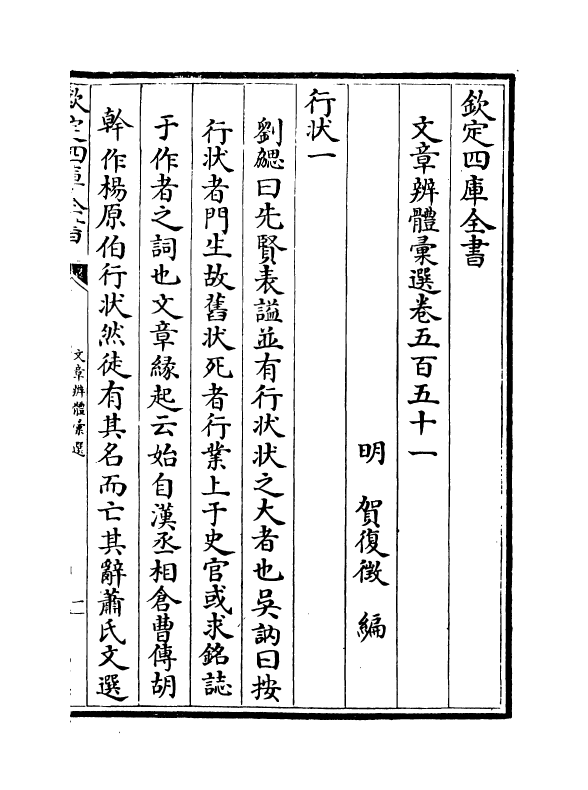 欽定四庫全書
文章辨體彙選卷五百五十一
明　賀復徵　編
行状一
劉勰曰先賢表謚並有行状状之大者也吳訥曰按
行状者門生故舊状死者行業上于史官或求銘誌
于作者之詞也文章緣起云始自漢丞相倉曹傅胡
幹作楊原伯行状然徒有其名而亡其辭蕭氏文選
文章辨體彙選